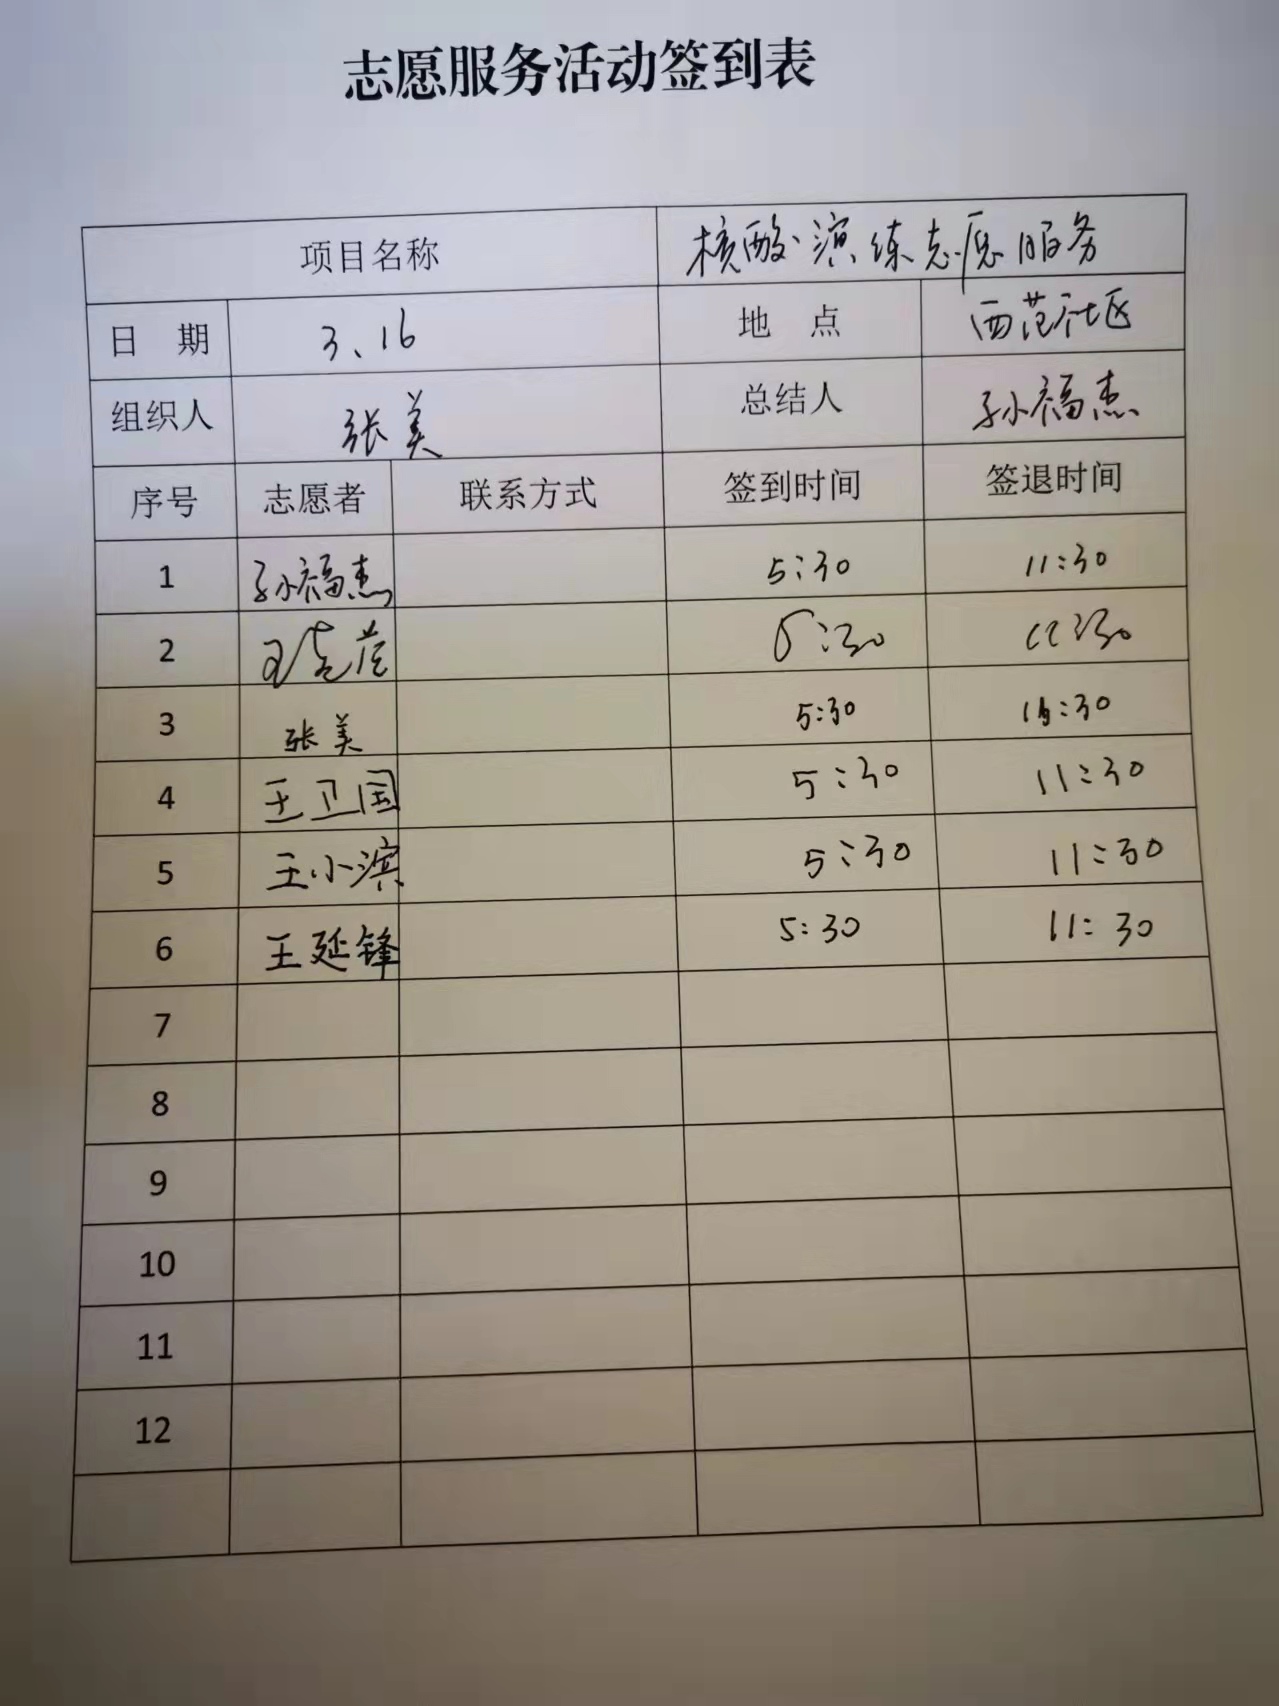 志愿服务活动签到表
项目名称 核酸演练志愿服务
日 期 3、16 地 点 西范社区
组织人 张美 总结人 孙福杰
序号 志愿者 联系方式 签到时间 签退时间
1 孙福杰 5:30 11:30
2 5:30 11:30
3 张美 5:30 :30
4 王卫国 5:30 11:30
5 王小滨 5:30 11:30
6 王延锋 5:30 11:30
7
8
9
10
11
12